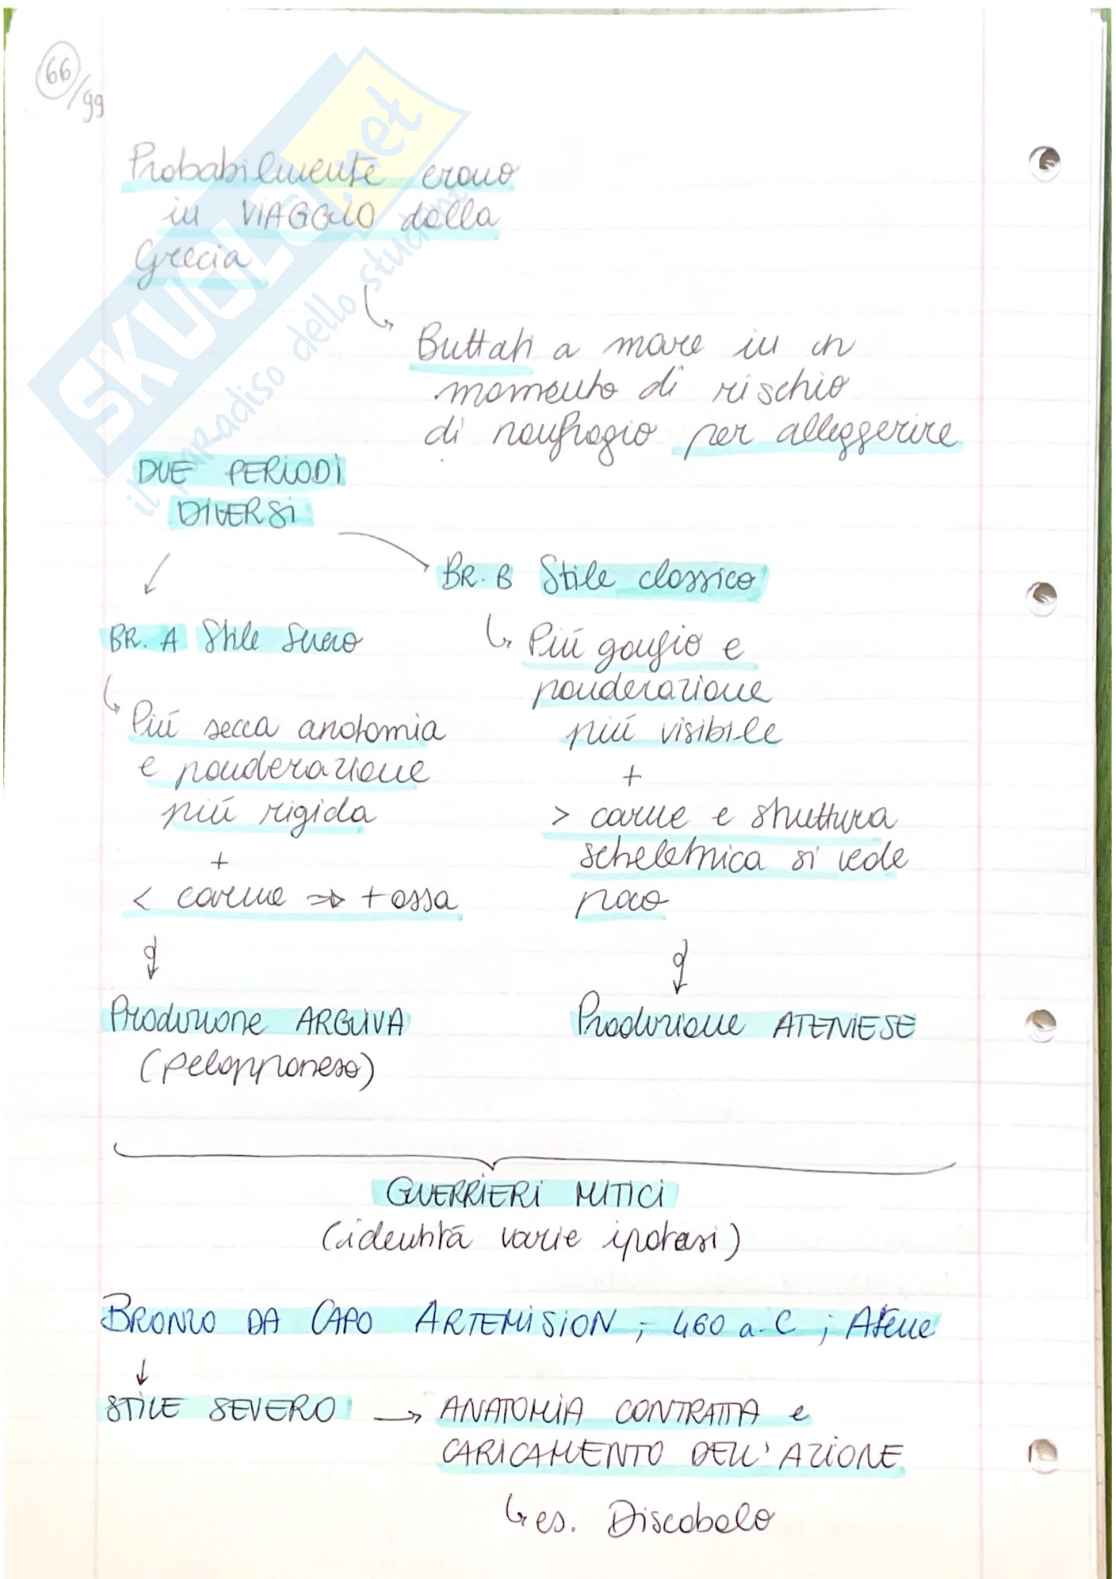 66/99
SKUOLA.net
il paradiso dello studente
Probabilmente erano
in VIAGGIO dalla
Grecia
Buttati a mare in un
momento di rischio
di naufragio per alleggerire
DUE PERIODI
DIVERSI
BR. B Stile classico
BR. A Stile Severo
Più gonfio e
ponderazione
più visibile
+
> carne e struttura
scheletrica si vede
poco
Più secca anatomia
e ponderazione
più rigida
+
< carne => + ossa
Produzione ARGIVA
(peloponneso)
Produzione ATENIESE
GUERRIERI MITICI
(identità varie ipotesi)
BRONZO DA CAPO ARTEMISION ; 460 a.C ; Atene
STILE SEVERO → ANATOMIA CONTRATTA e
CARICAMENTO DELL'AZIONE
es. Discobolo